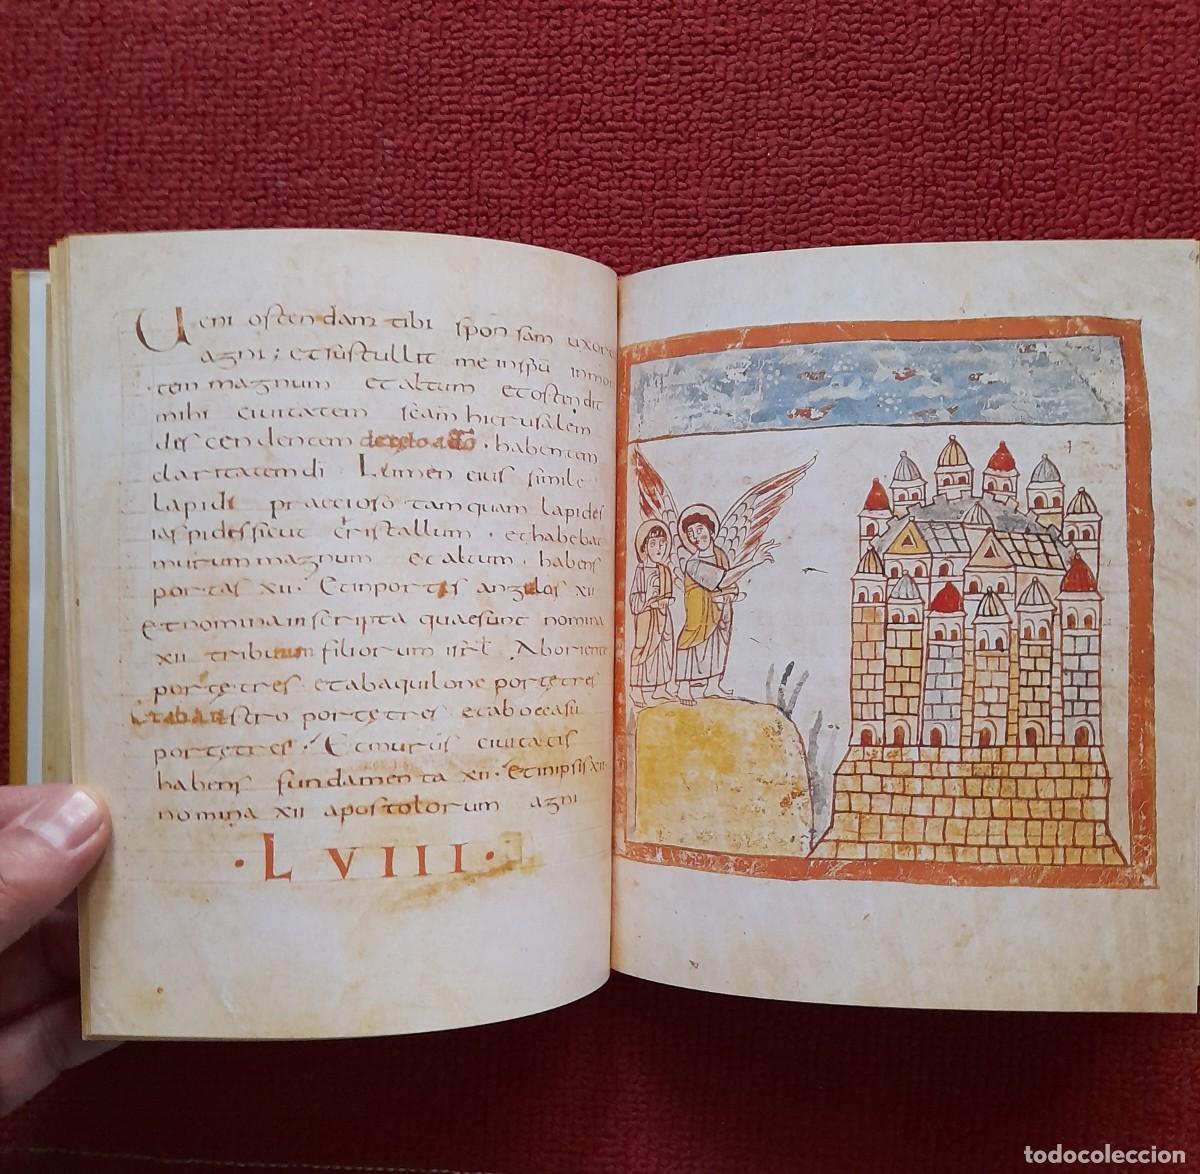 Ueni ostendam tibi sponsam uxore
agni; et sustullit me inspu inmon
tem magnum et altum et ostendit
mihi ciuitatem scam hierusalem
discendentem decelo ado · habentem
claritatem di Lumen eius simile
lapidi praecioso tamquam lapides
iaspidessicut cristallum · et habebat
murum magnum et altum · habens
portas XII · Et inportis angelos XII
et nomina inscripta quaesunt nomina
XII tribuum filiorum isrl Aboriente
portę tres · et abaquilone portę tres
et abaustro portę tres et abocasu
portę tres · Et murus ciuitatis
habens fundamenta XII · et inipsis XII
nomina XII apostolorum agni
· L VIII ·
todocoleccion